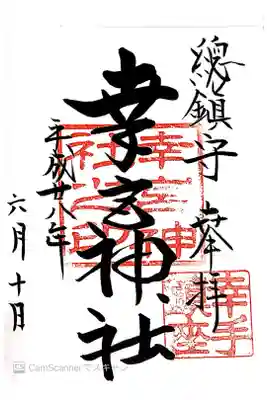 總鎮守 奉拝
幸宮神社
平成廿八年
六月十日
幸宮神
社之印
幸手
CS CamScanner でスキャン